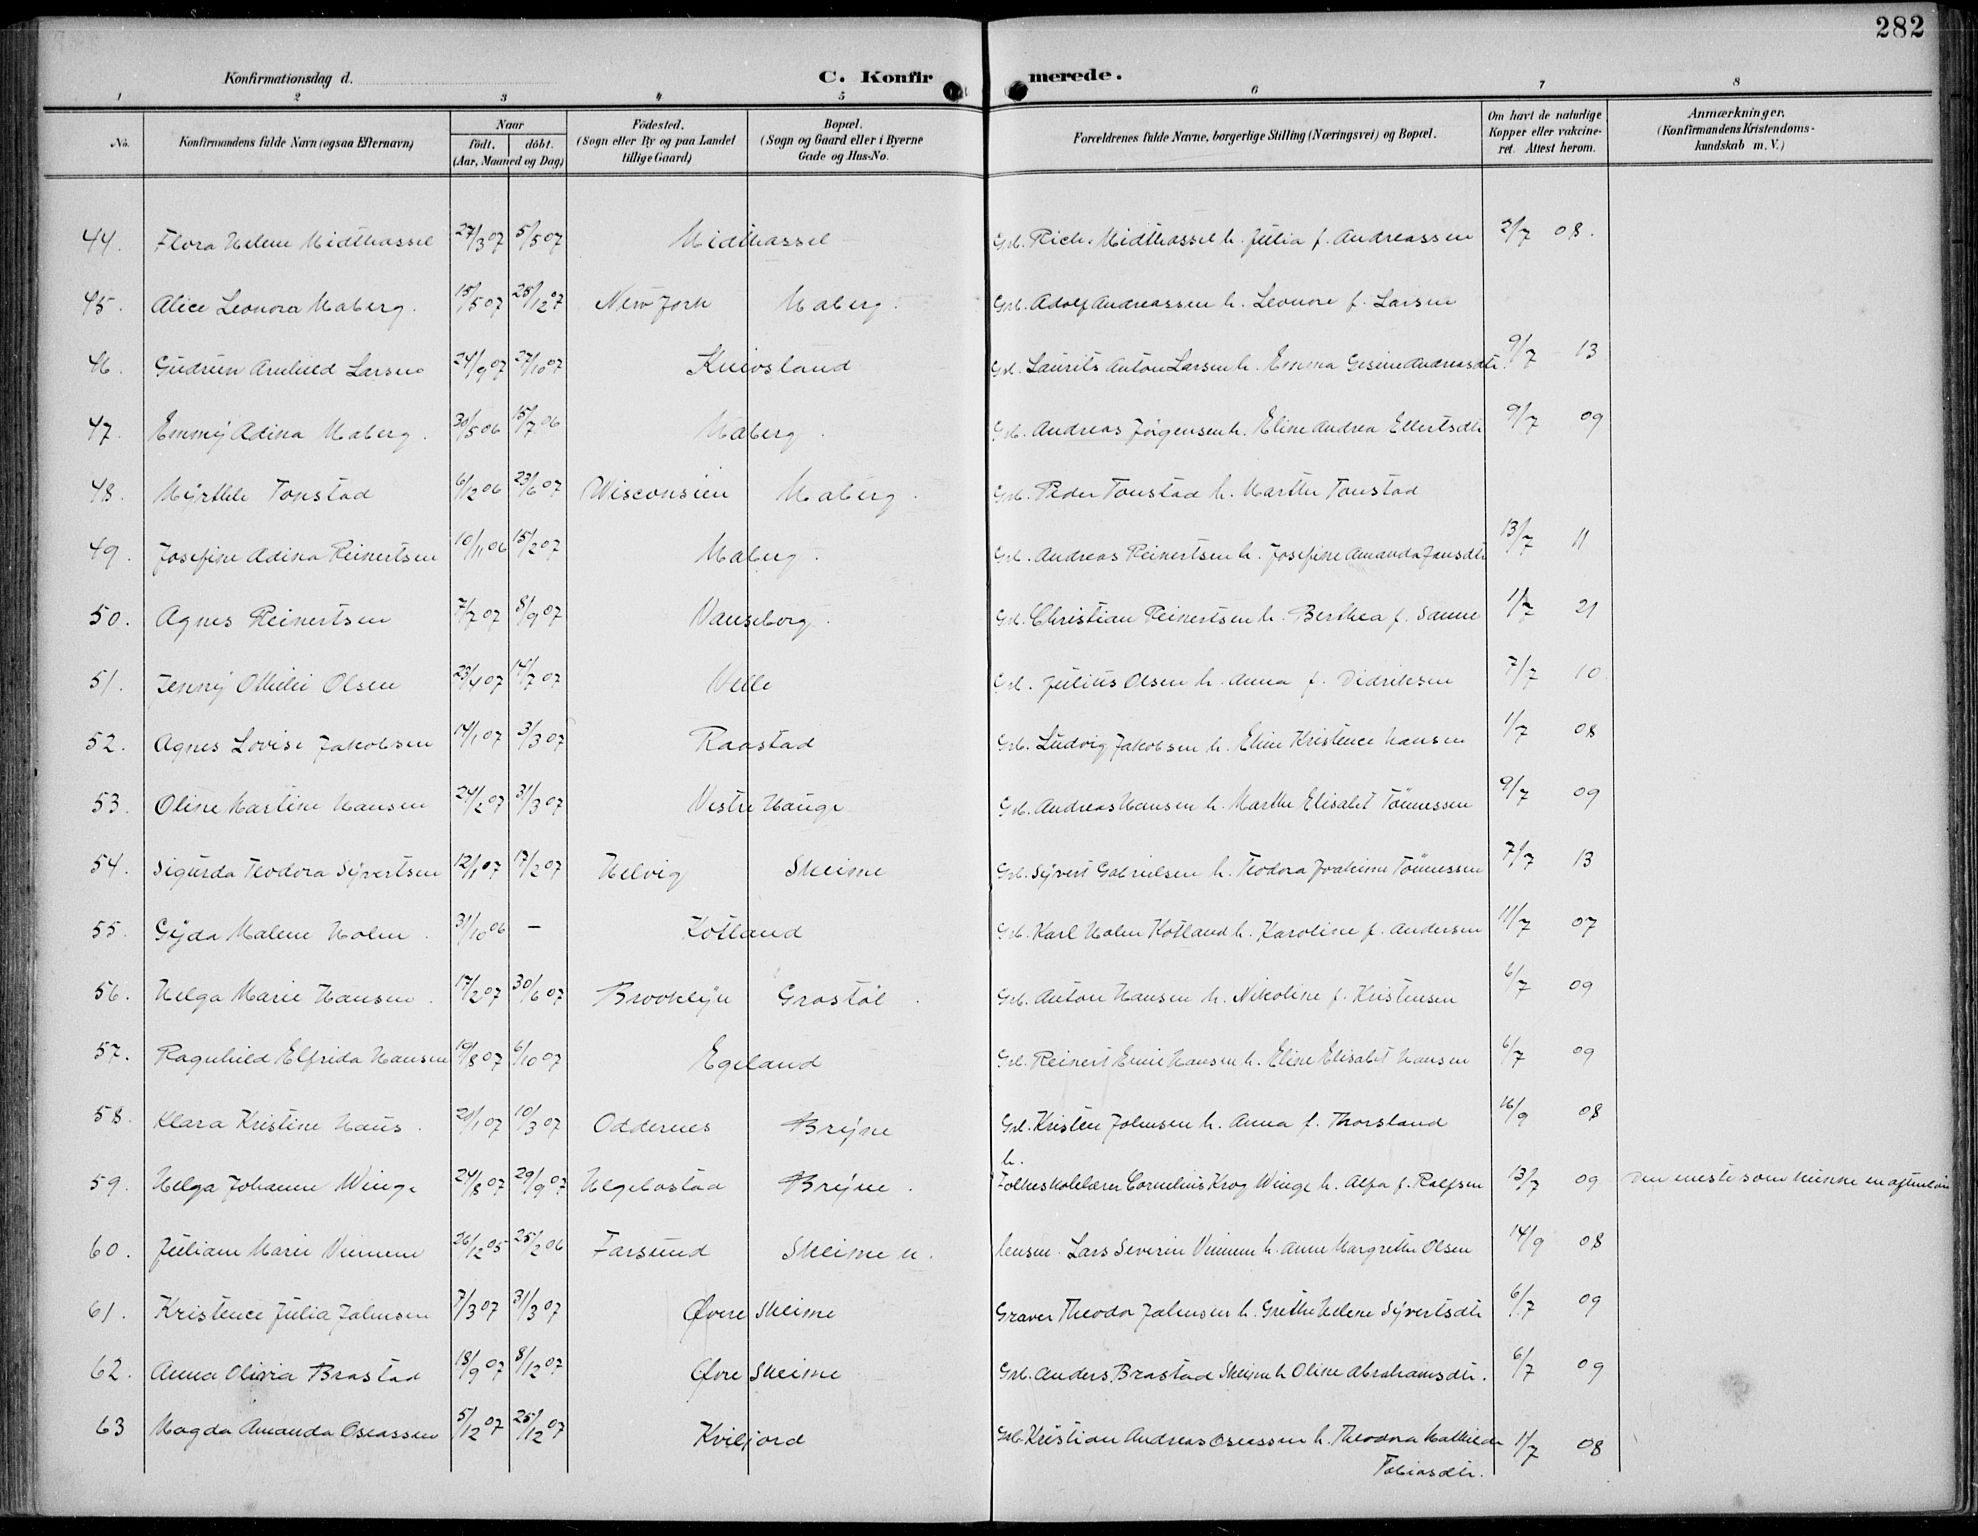 282
Konfirmationsdag d. C. Konfirmerede.
1 2 3 4 5 6 7 8
No. Konfirmandens fulde Navn (ogsaa Efternavn) Naar født. døbt. (Aar, Maaned og Dag) Fødested. (Sogn eller By og paa Landet tillige Gaard) Bopæl. (Sogn og Gaard eller i Byerne Gade og Hus-No. Forældrenes fulde Navne, borgerlige Stilling (Næringsvei) og Bopæl. Om havt de naturlige Kopper eller vaccineret. Attest herom. Anmærkninger. (Konfirmandens Kristendomskundskab m. V.)
44. Flora Helene Midthassel 27/3 07 5/5 07 Midthassel Grb. Rich. Midthassel h. Julia f. Andreassen 2/7 08.
45. Alice Leonora Maberg. 15/5 07 28/12 07 New York Maberg. Grb. Adolf Andreassen h. Leonore f. Larsen
46. Gudrun Arnhild Larsen 24/9 07 27/10 07 Knivsland Grb. Laurits Anton Larsen h. Emma Gesine Andreasdt. 9/7 13
47. Emmy Adina Maberg. 30/5 06 15/7 06 Maberg. Grb. Andreas Jörgensen h. Eline Andrea Ellertsdt. 9/7 09
48. Myrthle Tonstad 6/12 06 23/6 07 Wisconsien Maberg. Grb. Peder Tonstad h. Marthe Tonstad
49. Josefine Adina Reinertsen 10/11 06 15/2 07 Maberg. Grb. Andreas Reinertsen h. Josefine Amanda Jansdt. 13/7 11
50. Agnes Reinertsen 7/7 07 8/9 07 Vanseborg. Grb. Christian Reinertsen h. Berthea f. Sanne 1/7 21
51. Jenny Othelie Olsen 23/4 07 14/7 07 Velle Grb. Julius Olsen h. Anna f. Didriksen 7/7 10
52. Agnes Lovise Jakobsen 14/1 07 3/3 07 Raastad Grb. Ludvig Jakobsen h. Eline Kristence Hansen 1/7 08
53. Oline Martine Hansen 24/2 07 31/3 07 Vestre Hauge Grb. Andreas Hansen h. Marthe Elisabet Tönnessen 9/7 09
54. Sigurda Teodora Syvertsen 12/1 07 17/2 07 Helvig Skeime Grb. Syvert Gabrielsen h. Teodora Joakime Tönnessen 7/7 13
55. Gyda Malene Holm. 31/10 06 — Kotland Grb. Karl Holm Kotland h. Karoline f. Andersen 11/7 07
56. Helga Marie Hansen. 17/2 07 30/6 07 Brooklyn Grostöl. Grb. Anton Hansen h. Nikoline f. Kristensen 6/7 09
57. Ragnhild Elfrida Hansen 19/8 07 6/10 07 Egeland Grb. Reinert Emil Hansen h. Eline Elisabet Hansen 6/7 09
58. Klara Kristine Haus. 20/1 07 10/3 07 Oddernes Bryne Grb. Kristen Johnsen h. Anna f. Thorsland 16/9 08
59. Helga Johanne Winge 24/8 07 29/9 07 Hegebostad Bryne. h. Folkeskolelærer Cornelius Krog Winge h. Alfa f. Rolfsen 13/7 09 Den eneste som kunne
60. Juliane Marie Vinnem 26/12 05 25/2 06 Farsund Skeime n. Lensm. Lars Severin Vinnem h. Anne Margrethe Olsen 14/9 08
61. Kristence Julia Johnsen 7/3 07 31/3 07 Øvere Skeime Graver Theodor Johnsen h. Grethe Helene Syvertsdt. 6/7 09
62. Anna Olivia Brastad 18/9 07 8/12 07 Øvre Skeime Grb. Anders Brastad Skeime h. Oline Abrahamsdt. 6/7 09
63 Magda Amanda Oseassen 5/12 07 25/12 07 Kviljord Grb. Kristian Andreas Oseassen h. Theodora Mathilde Tobiasdt. 1/7 08